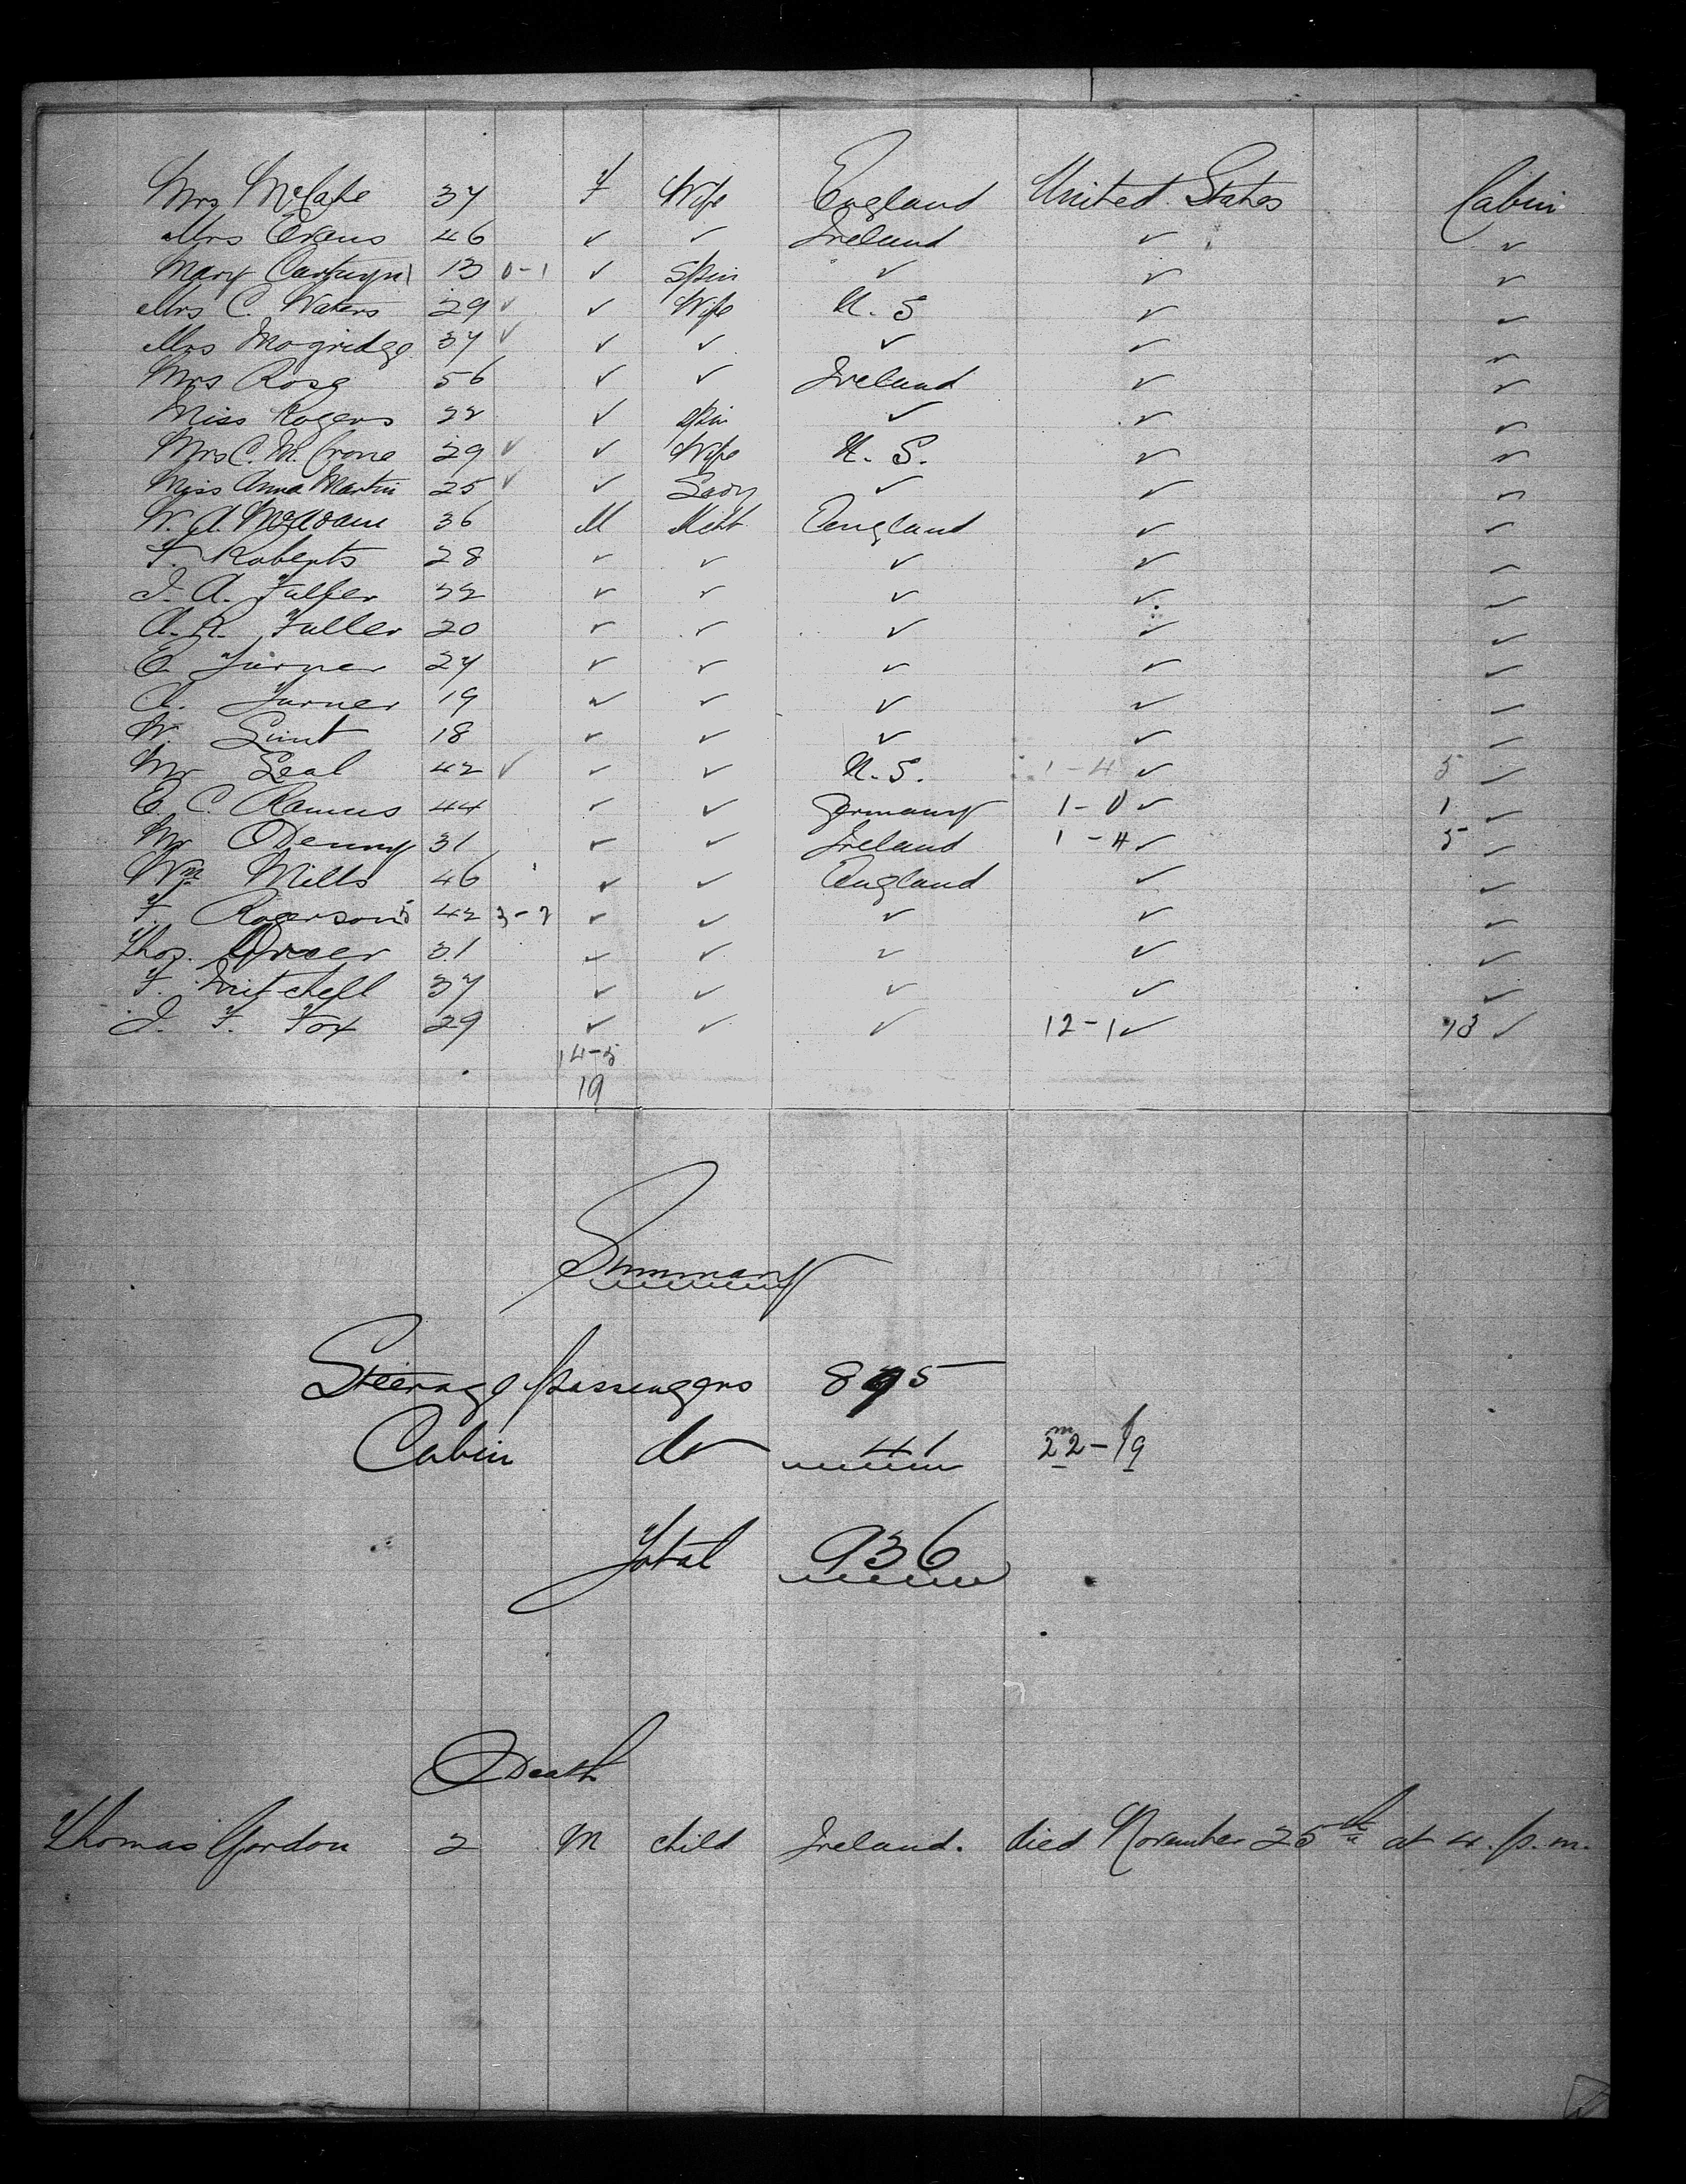 Mrs McCabe 37 F Wife England United States Cabin
Mrs Evans 46 ✓ ✓ Ireland ✓ ✓
Mary 13 0-1 ✓ Spin ✓ ✓ ✓
Mrs C. Waters 29 ✓ ✓ Wife U. S ✓ ✓
Mrs Mogridge 37 ✓ ✓ ✓ ✓ ✓ ✓
Mrs Rose 56 ✓ ✓ Ireland ✓ ✓
Miss Rogers 22 ✓ Spin ✓ ✓ ✓
Mrs C. M. Crone 29 ✓ ✓ Wife U. S. ✓ ✓
Miss Anna Martin 25 ✓ ✓ Lady ✓ ✓ ✓
W. A. McAdam 36 M England ✓ ✓
F. Roberts 28 ✓ ✓ ✓ ✓ ✓
J. A. Fuller 32 ✓ ✓ ✓ ✓ ✓
A. R. Fuller 20 ✓ ✓ ✓ ✓ ✓
E. Turner 27 ✓ ✓ ✓ ✓ ✓
A. Turner 19 ✓ ✓ ✓ ✓ ✓
W. Lunt 18 ✓ ✓ ✓ ✓ ✓
Mr Leal 42 ✓ ✓ ✓ U. S. 1-4 ✓ 5 ✓
E. C. Ramus 44 ✓ ✓ Germany 1-0 ✓ 1 ✓
Mr ODenny 31 ✓ ✓ Ireland 1-4 ✓ 5 ✓
Wm Mills 46 ✓ ✓ England ✓ ✓
F. Rogerson 5 42 3-2 ✓ ✓ ✓ ✓ ✓
Thos. 31 ✓ ✓ ✓ ✓ ✓
F. Mitchell 37 ✓ ✓ ✓ ✓ ✓
J. F. Fox 29 ✓ ✓ ✓ 12-1 ✓ 13 ✓
14-5
19
Summary
Steerage passengers 895
Cabin do 41 m 22-19
Total 936
Death
Thomas Gordon 2 M child Ireland. died November 25th at 4. p. m.